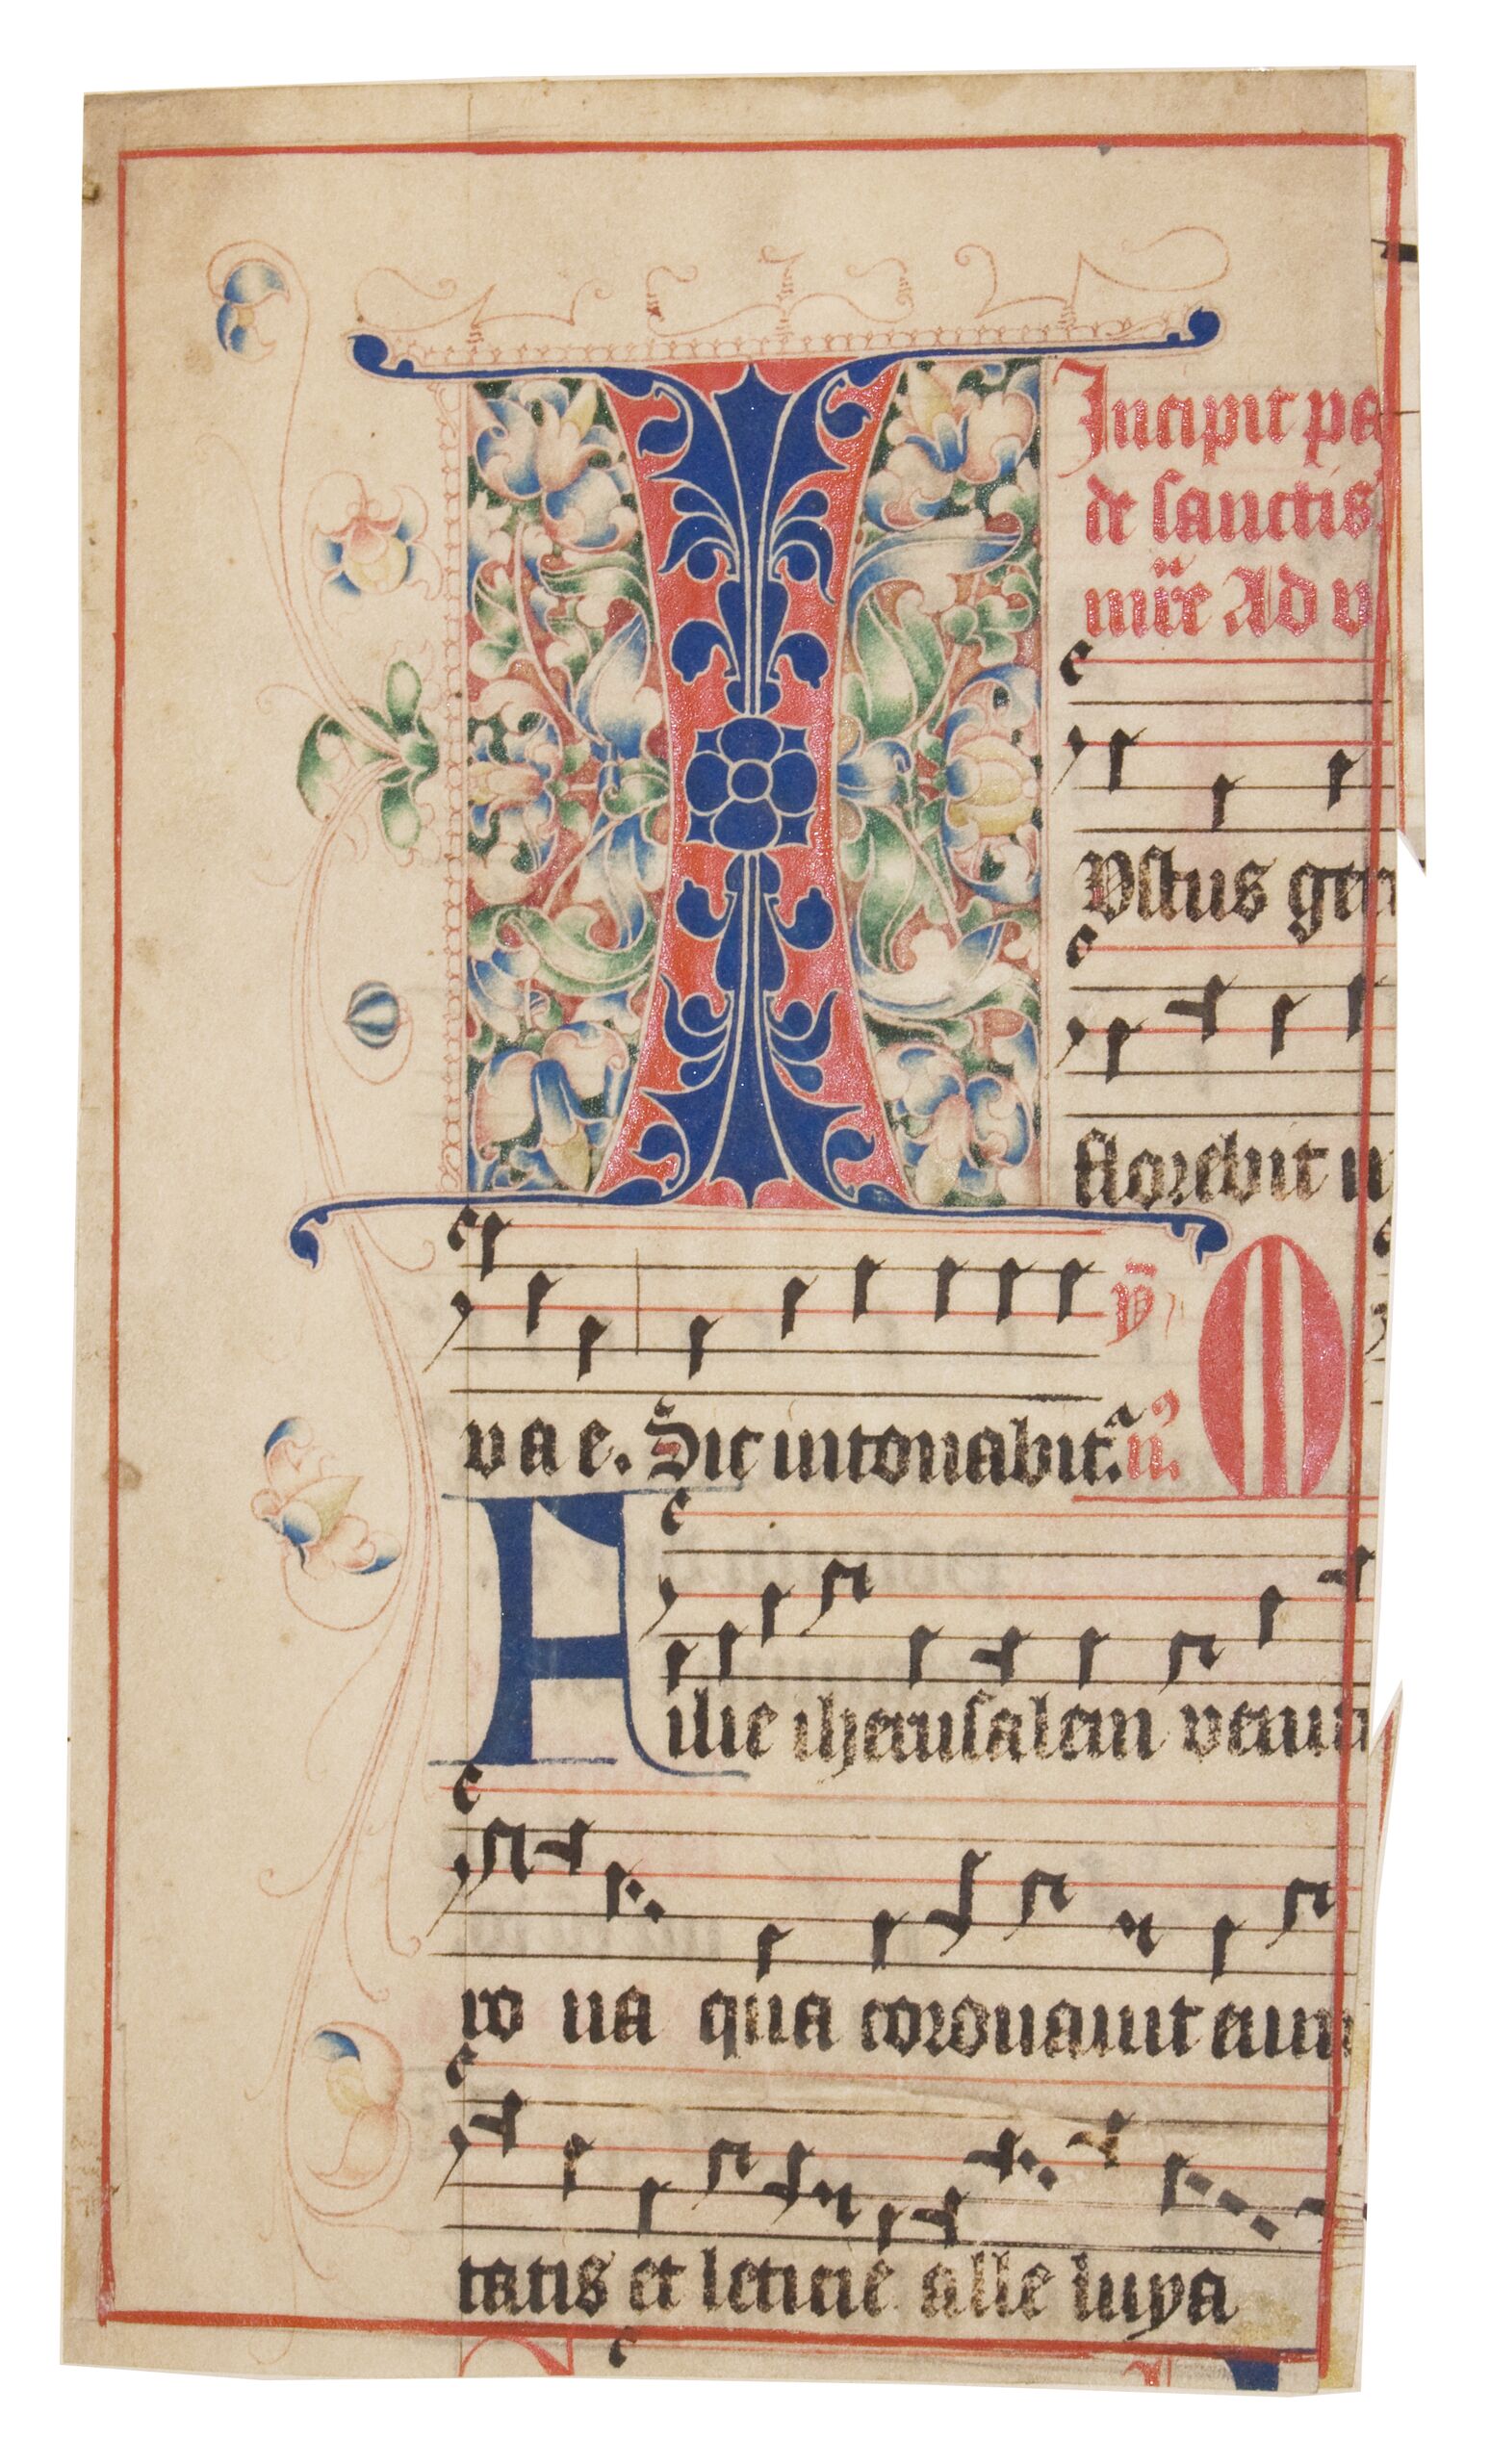 Incipit pa
de sanctis
Ad v
I
ustus ger
florebit in
v a e. Sic intonabit.
O
Filie iherusalem venit
ro na qua coronauit eum
tatis et leticie alle luya